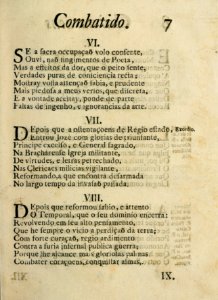 Combatido. 7
VI.
SE a sacra occupaçaõ volo consente,
Ouvi, naõ fingimentos de Poeta,
Mas a effeitos da dor, que o peito sente,
Verdades puras de consciencia recta:
Mostray vossa attençaõ sabio, e prudente
Mais piedosa a meus versos, que discreta,
E a vontade aceitay, ponde de parte
Faltas de ingenho, e ignorancias da arte.
VII.
DEpois que a ostentaçoens de Regio estado, Exordio.
Entrou Jozé com glorias de triunfante,
Principe excelso, e General sagrado,
Na Bracharense Igreja militante,
De virtudes, e letras petrechado,
Nas Clericaes milicias vigilante,
Reformando, a que encontra desarmada
No largo tempo da passada.
VIII.
DEpois que reformou sabio, e attento
O Temporal, que o seu dominio encerra:
Revolvendo em seu alto pensamento,
Que he sempre o vicio a perdiçaõ da terra;
Com forte coraçaõ, regio ardimento
Contra a furia infernal publíca guerra;
Porque lhe alcance mais gloriosas palmas
Combater coraçoens, conquistar almas.
IX.